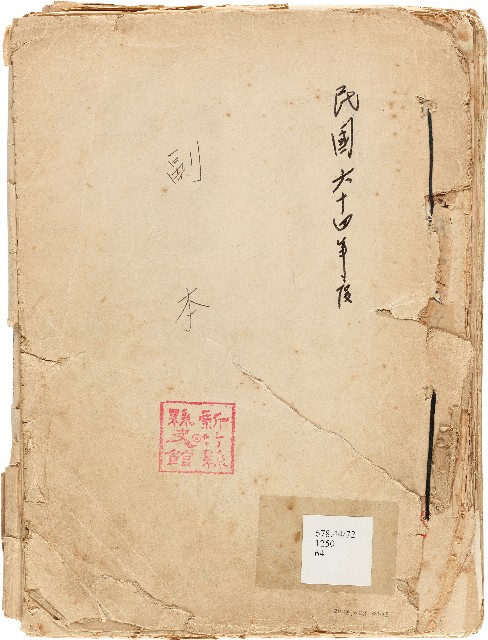 民國六十四年度
副本
新竹縣
縣史館
578.44/72
1250
64